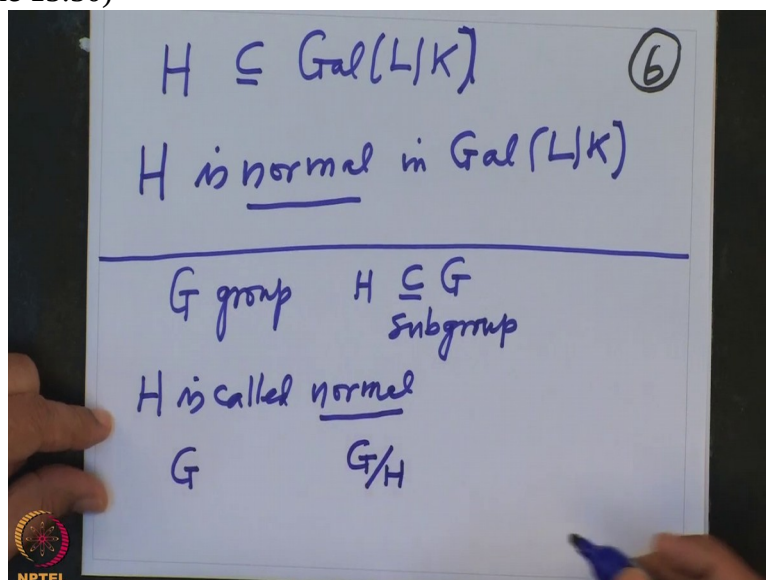 H ⊆ Gal(L|K)
6
H is normal in Gal(L|K)
G group H ⊆ G
subgroup
H is called normal
G G/H
NPTEL